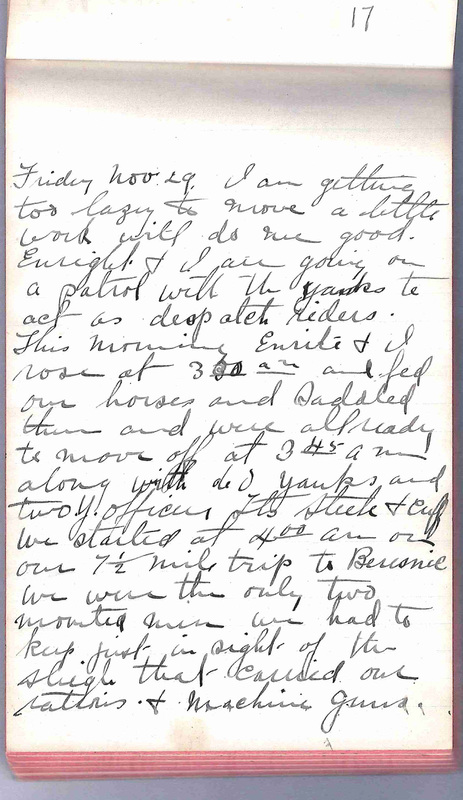 17
Friday Nov 29. I am getting
too lazy to move a little
work will do me good.
Enright & I are going on
a patrol with the yanks to
act as despatch riders.
This morning Enrite & I
rose at 3 am and fed
our horses and Saddled
them and were all ready
to move off at 3 45 am
along with yanks and
two Y. officers, Lts Steele & Cuff
we started at 4 00 am on
our 7 1/2 mile trip to
we were the only two
mounted men we had to
keep just in sight of the
sleigh that carried our
rations & Machine Guns.